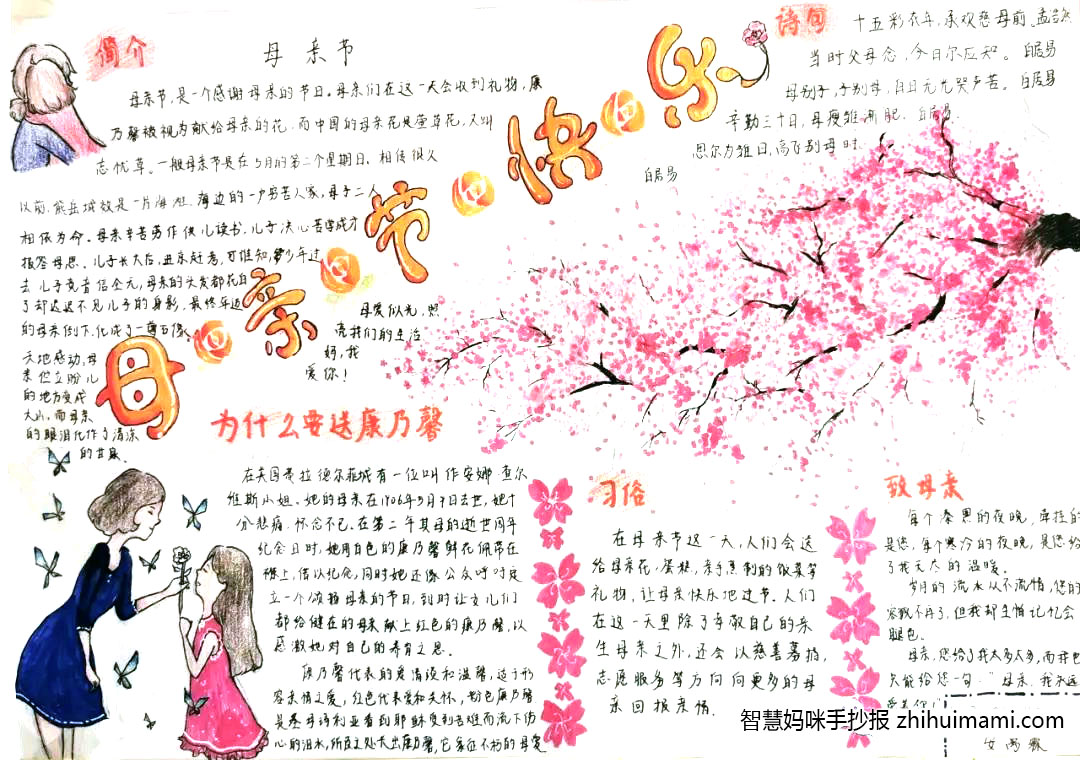 简介
母亲节
母亲节,是一个感谢母亲的节日。母亲们在这一天会收到礼物,康
乃馨被视为献给母亲的花,而中国的母亲花是萱草花,又叫
忘忧草。一般母亲节是在5月的第二个星期日。相传很久
以前,熊岳城效是一片海滩,海边的一户穷苦人家,母子二人
相依为命。母亲辛苦劳作供儿读书,儿子决心苦学成才
报答母恩。儿子长大后,进京赶考,可谁知,多少年过
去儿子竟音信全无,母亲的头发都花白
了却迟迟不见儿子的身影,最终年迈
的母亲倒下,化成了一尊石像。
天地感动,母
亲伫立盼儿
的地方变成
大山,而母亲
的眼泪化作了清凉
的甘泉。
母亲节快乐
母爱似光,照
亮我们的生活
妈,我
爱你!
诗句
十五彩衣年,承欢慈母前。孟浩然
当时父母念,今日尔应知。白居易
母别子,子别母,白日无光哭声苦。白居易
辛勤三十日,母瘦雏渐肥。白居易
思尔为雏日,高飞别母时。
白居易
为什么要送康乃馨
在美国费拉德尔菲城有一位叫作安娜·查尔
维斯小姐。她的母亲在1906年5月9日去世,她十
分悲痛,怀念不已。在第二年其母的逝世周年
纪念日时,她用白色的康乃馨鲜花佩带在
襟上,借以忆化,同时她还像公众呼吁设
立一个颂扬母亲的节日,到时让女儿们
都给健在的母亲献上红色的康乃馨,以
感激她对自己的养育之恩。
康乃馨代表的爱清淡和温馨,适于形
容亲情之爱,红色代表爱和关怀,粉色康乃馨
是圣母玛利亚看到耶稣受到苦难而流下伤
心的泪水,所落之处长出康乃馨,它象征不朽的母爱
习俗
在母亲节这一天,人们会送
给母亲花,蛋糕,亲手烹制的饭菜等
礼物,让母亲快乐地过节。人们
在这一天里除了孝敬自己的亲
生母亲之外,还会以慈善募捐,
志愿服务等方向向更多的母
亲回报亲情。
致母亲
每个漆黑的夜晚,牵挂的
是您,每个寒冷的夜晚,是您给
了我无尽的温暖。
岁月的流水从不流情,您的
容貌不再了,但我却
褪色。
母亲,您给了我太多太多,而我也
只能给您一句:"母亲,我永远
智慧妈咪手抄报 zhihuimami.com